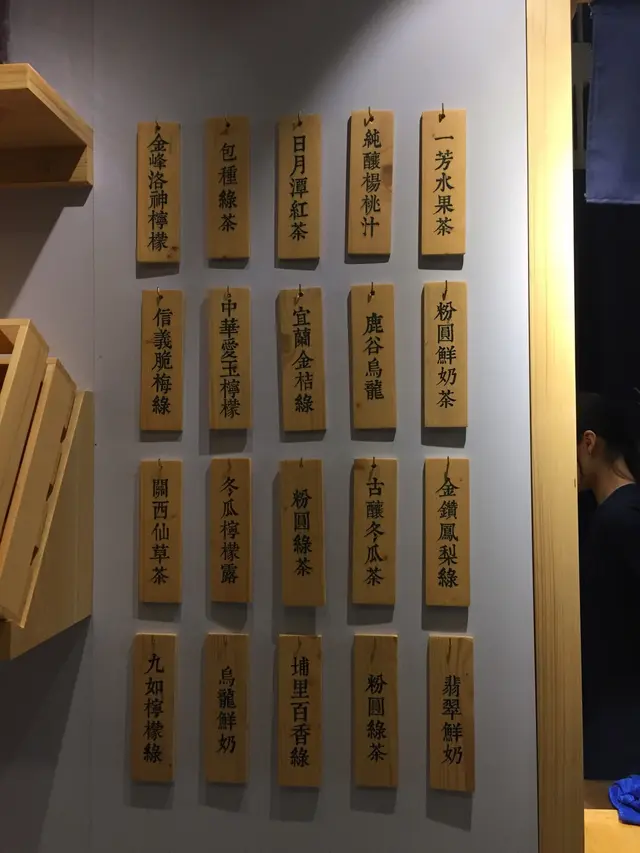 一芳水果茶
純釀楊桃汁
日月潭紅茶
包種綠茶
金峰洛神檸檬
粉圓鮮奶茶
鹿谷烏龍
宜蘭金桔綠
中華愛玉檸檬
信義脆梅綠
金鑽鳳梨綠
古釀冬瓜茶
粉圓綠茶
冬瓜檸檬露
關西仙草茶
翡翠鮮奶
粉圓綠茶
埔里百香綠
烏龍鮮奶
九如檸檬綠